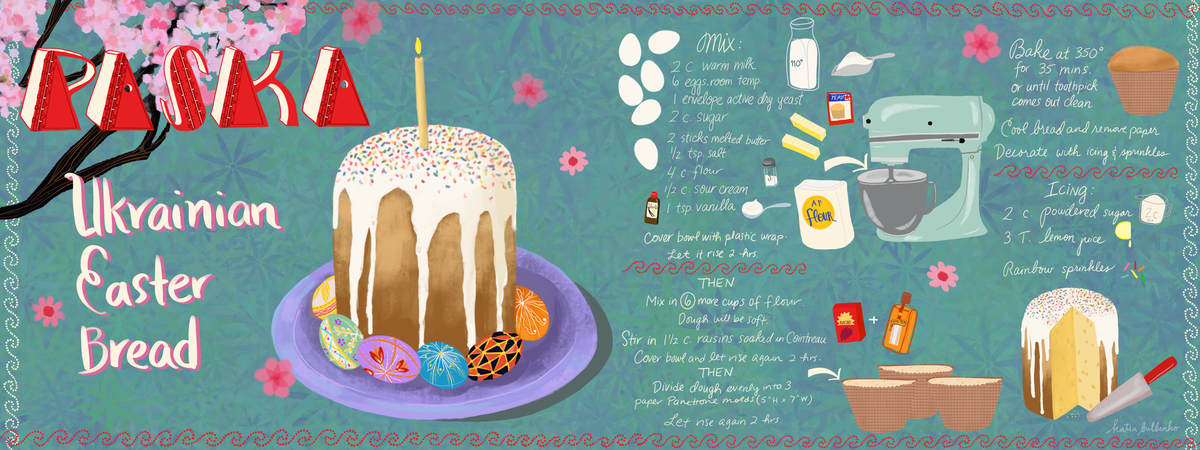 PASKA
Ukrainian
Easter
Bread
Mix:
2 c. warm milk
6 eggs. room temp.
1 envelope active dry yeast
2 c. sugar
2 sticks melted butter
1/2 tsp. salt
4 c. flour
1/2 c. sour cream
1 tsp. vanilla
Cover bowl with plastic wrap.
Let it rise 2 hrs.
110°
YEAST
A.P.
flour
THEN
Mix in 6 more cups of flour.
Dough will be soft.
Stir in 1 1/2 c. raisins soaked in Cointreau
Cover bowl and let rise again 2 hrs.
THEN
Divide dough evenly into 3
paper Panettone molds (5"H x 7"W)
Let rise again 2 hrs.
+
Bake at 350°
for 35 mins.
or until toothpick
comes out clean
Cool bread and remove paper
Decorate with icing & sprinkles
Icing:
2 c. powdered sugar
3 T. lemon juice
Rainbow sprinkles
2c